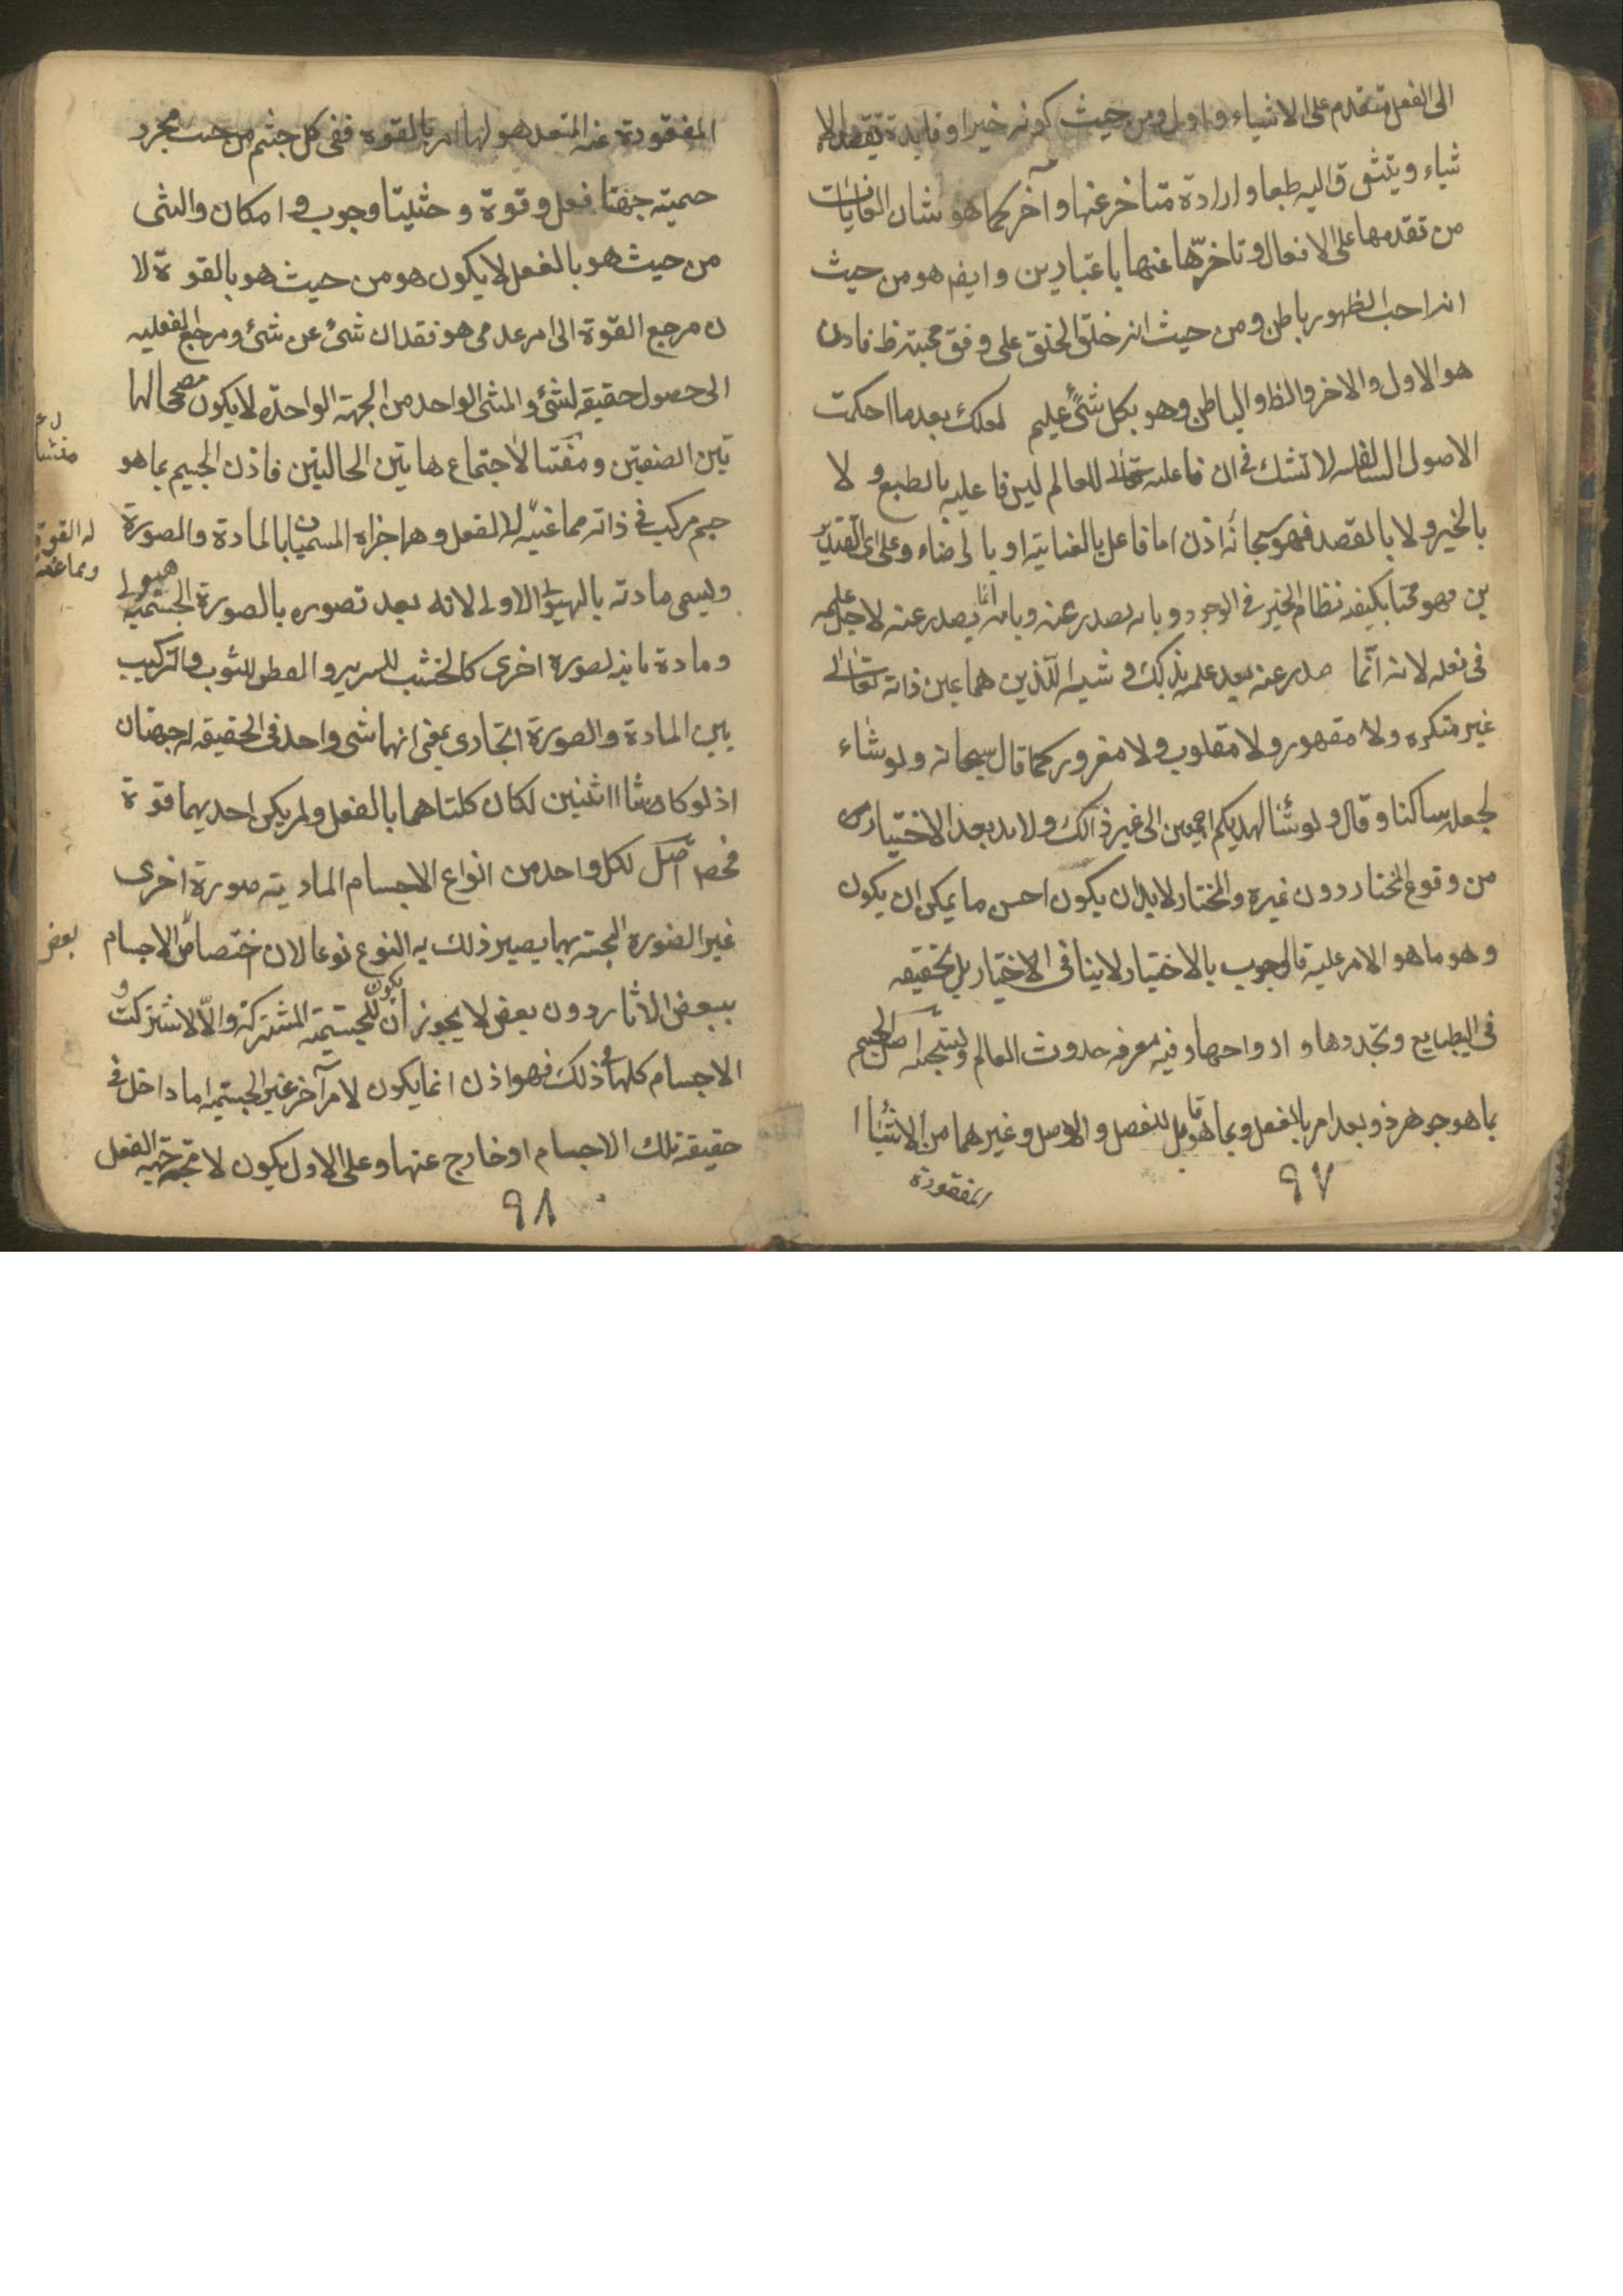 الى الفعل متقدم على الاشياء واول ومن حيث كونه خيرا وفايدة يقصد الا
شياء ويتشوق اليه طبعا وارادة متاخر عنها وآخر كما هو شان الغايات
من تقدمها على الافعال وتاخرها عنها باعتبارين وايضم هو من حيث
انه احب الظهور باطن ومن حيث انه خلق الخلق على وفق محبته ظ فاذن
هو الاول والاخر والظ والباطن وهو بكل شئ عليم لعلك بعد ما احكمت
الاصول السالفه لا تشك فى ان فاعليه تعالى للعالم ليس فاعليه بالطبع ولا
بالخير ولا بالقصد فهو سبحانه اذن اما فاعل بالعنايته او بالرضاء وعلى اى التقديرـ
ين فهو بكيفه نظام الخير فى الوجود وبانه يصدر عنه وبانه انما يصدر عنه لاجل علمه
فى فعله لانه انما صدر عنه بعد علمه بذلك و اللذين هما عين ذاته تعالى
غير متكره ولا مقهور ولا مقلوب ولا مغرور كما قال سبحانه ولو شاء
لجعله ساكنا وقال ولو شئنا لهديكم اجمعين الى غير ذالك ولابد بعد الاختيار
من وقوع المختار دون غيره والمختار لابد ان يكون احسن ما يمكن ان يكون
وهو ما هو الامر عليه فالوجوب بالاختيار لا ينافى الاختيار بل تحقيقه
فى الطبايع وتجددها و ازواجها وفيه معرفه حدوث العالم اصل الجسم
بما هو جوهر ذو بعد امر بالفعل وبما هو قابل للفصل والوصل وغيرهما من الاشياا
المفقودة
٩٧
المفقودة عنه المتعد هو لها امر بالقوه ففى كل جسم من حيث مجرد
جسميته جهتا فعل وقوة وحثيتا وجوب و امكان والشى
من حيث هو بالفعل لا يكون هو من حيث هو بالقوة لا
ن مرجع القوة الى امر عدمى هو فقدان شئ عن شئ ومرجع الفعليه
الى حصول حقيقه لشئ والشى الواحد من الجهة الواحدة لا يكون مصححا لها
تين الصفتين ومنشا لاجتماع هاتين الحالتين فاذن الجسيم بما هو
جسم مركب فى ذاته مما عنه له الفعل وهما جزاه المسميان بالمادة والصورة
وليسمى مادته بالهيولى الاولى لانه بعد تصوره بالصورة الجسمية هيولى
ومادة ثانيه لصورة اخرى كالخشب للسرير والقطن للثوب والتركيب
بين المادة والصورة اتحادى بمعنى انهما شى واحد فى الحقيقه له جهتان
اذ لو كانتا اثنين لكان كلتاهما بالفعل ولم يكن احديهما قوة
محضة اصل لكل واحد من انواع الاجسام الماديته صورة اخرى
غير الصورة الجسمية بها يصير ذلك به النوع نوعا لان اختصاص الاجسام
ببعض الاثار دون بعض لا يجوز ان يكون للجسمية المشتركة والا لاشتركت
الاجسام كلها فى ذلك فهو اذن انما يكون لامر آخر غير الجسميه اما داخل فى
حقيقة تلك الاجسام او خارج عنها وعلى الاول يكون لا محه جهته الفعل
منشا
له القوة
وما عنه
بعض
٩٨